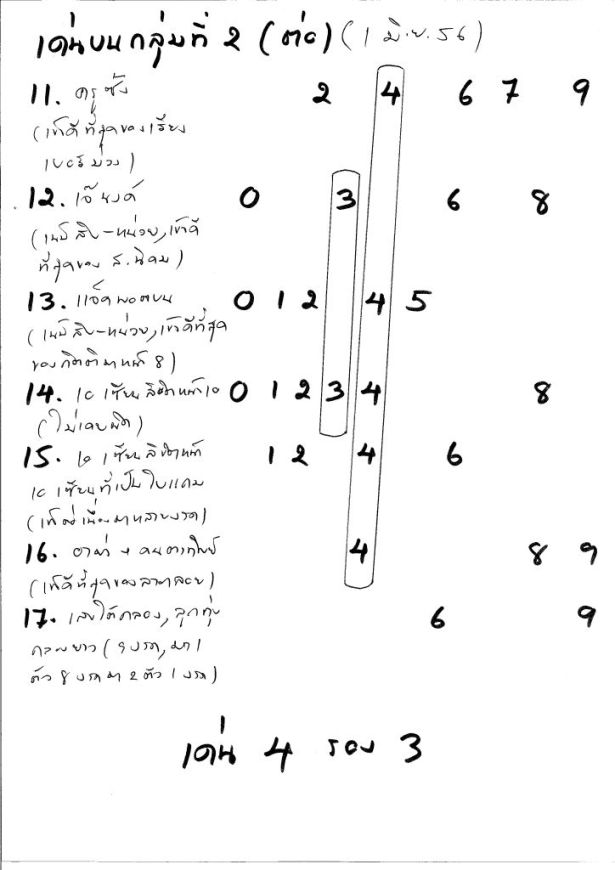 เด่นบนกลุ่มที่ 2 (ต่อ) (1 มิ.ย. 56)
11. ครูซัง 2 4 6 7 9
(เข้าดีที่สุดของเรียง
เบอร์ม่วง)
12. เจ๊นงค์ 0 3 6 8
(เน้นสิบ-หน่วย, เข้าดี
ที่สุดของ ส.นิคม)
13. แจ็คพอตบน 0 1 2 4 5
(เน้นสิบ-หน่วย, เข้าดีที่สุด
ของกิตติมาหน้า 8)
14. เซียน ลิขิตหน้า 10 0 1 2 3 4 8
(ไม่เคยผิด)
15. เซียนลิขิตหน้า 1 2 4 6
เซียนที่เป็นใบแถม
(เข้าต่อเนื่องมาหลายงวด)
16. 4 8 9
(เข้าดีที่สุดของ)
17. เลขใต้กลอง, ลูกทุ่ง 6 9
(9 งวด, มา 1
ตัว 8 งวด มา 2 ตัว 1 งวด)
เด่น 4 รอง 3